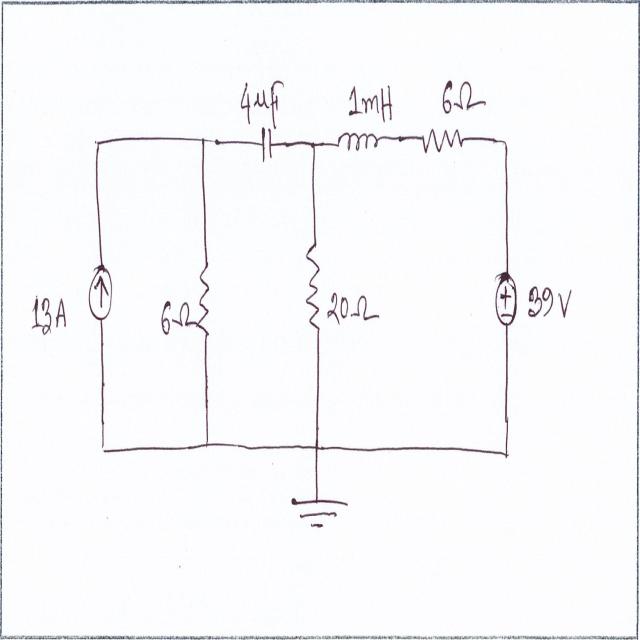 4μF 1mH 6Ω
13A 6Ω 20Ω 39V